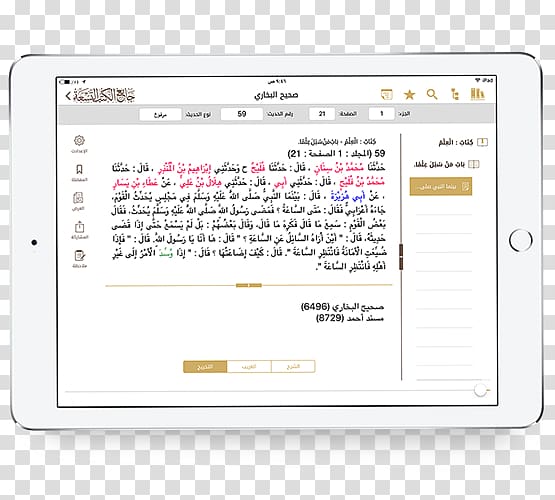 iPad
٩:٤٦ ص
جامع الكتب التسعة
صحيح البخاري
الجزء: 1 الصفحة: 21 رقم الحديث: 59 نوع الحديث: مرفوع
كِتَابُ : الْعِلْمِ
بَابُ مَنْ سُئِلَ عِلْمًا.
بينما النبي صلى...
الإعدادات
المفضلة
العرض
المشاركة
ملاحظة
كِتَابُ : الْعِلْمِ - بَابُ مَنْ سُئِلَ عِلْمًا.
59 (المجلد : 1 الصفحة : 21)
حَدَّثَنَا مُحَمَّدُ بْنُ سِنَانٍ ، قَالَ : حَدَّثَنَا فُلَيْحٌ ح وَحَدَّثَنِي إِبْرَاهِيمُ بْنُ الْمُنْذِرِ ، قَالَ : حَدَّثَنَا
مُحَمَّدُ بْنُ فُلَيْحٍ ، قَالَ : حَدَّثَنِي أَبِي ، قَالَ : حَدَّثَنِي هِلَالُ بْنُ عَلِيٍّ ، عَنْ عَطَاءِ بْنِ يَسَارٍ
، عَنْ أَبِي هُرَيْرَةَ ، قَالَ : بَيْنَمَا النَّبِيُّ صَلَّى اللَّهُ عَلَيْهِ وَسَلَّمَ فِي مَجْلِسٍ يُحَدِّثُ الْقَوْمَ،
جَاءَهُ أَعْرَابِيٌّ فَقَالَ : مَتَى السَّاعَةُ ؟ فَمَضَى رَسُولُ اللَّهِ صَلَّى اللَّهُ عَلَيْهِ وَسَلَّمَ يُحَدِّثُ، فَقَالَ
بَعْضُ الْقَوْمِ : سَمِعَ مَا قَالَ فَكَرِهَ مَا قَالَ. وَقَالَ بَعْضُهُمْ : بَلْ لَمْ يَسْمَعْ حَتَّى إِذَا قَضَى
حَدِيثَهُ، قَالَ : " أَيْنَ أُرَاهُ السَّائِلُ عَنِ السَّاعَةِ ؟ " قَالَ : هَا أَنَا يَا رَسُولَ اللَّهِ. قَالَ : " فَإِذَا
ضُيِّعَتِ الْأَمَانَةُ فَانْتَظِرِ السَّاعَةَ ". قَالَ : كَيْفَ إِضَاعَتُهَا ؟ قَالَ : " إِذَا وُسِّدَ الْأَمْرُ إِلَى غَيْرِ
أَهْلِهِ فَانْتَظِرِ السَّاعَةَ ".
صحيح البخاري (6496)
مسند أحمد (8729)
الشرح
الغريب
التخريج